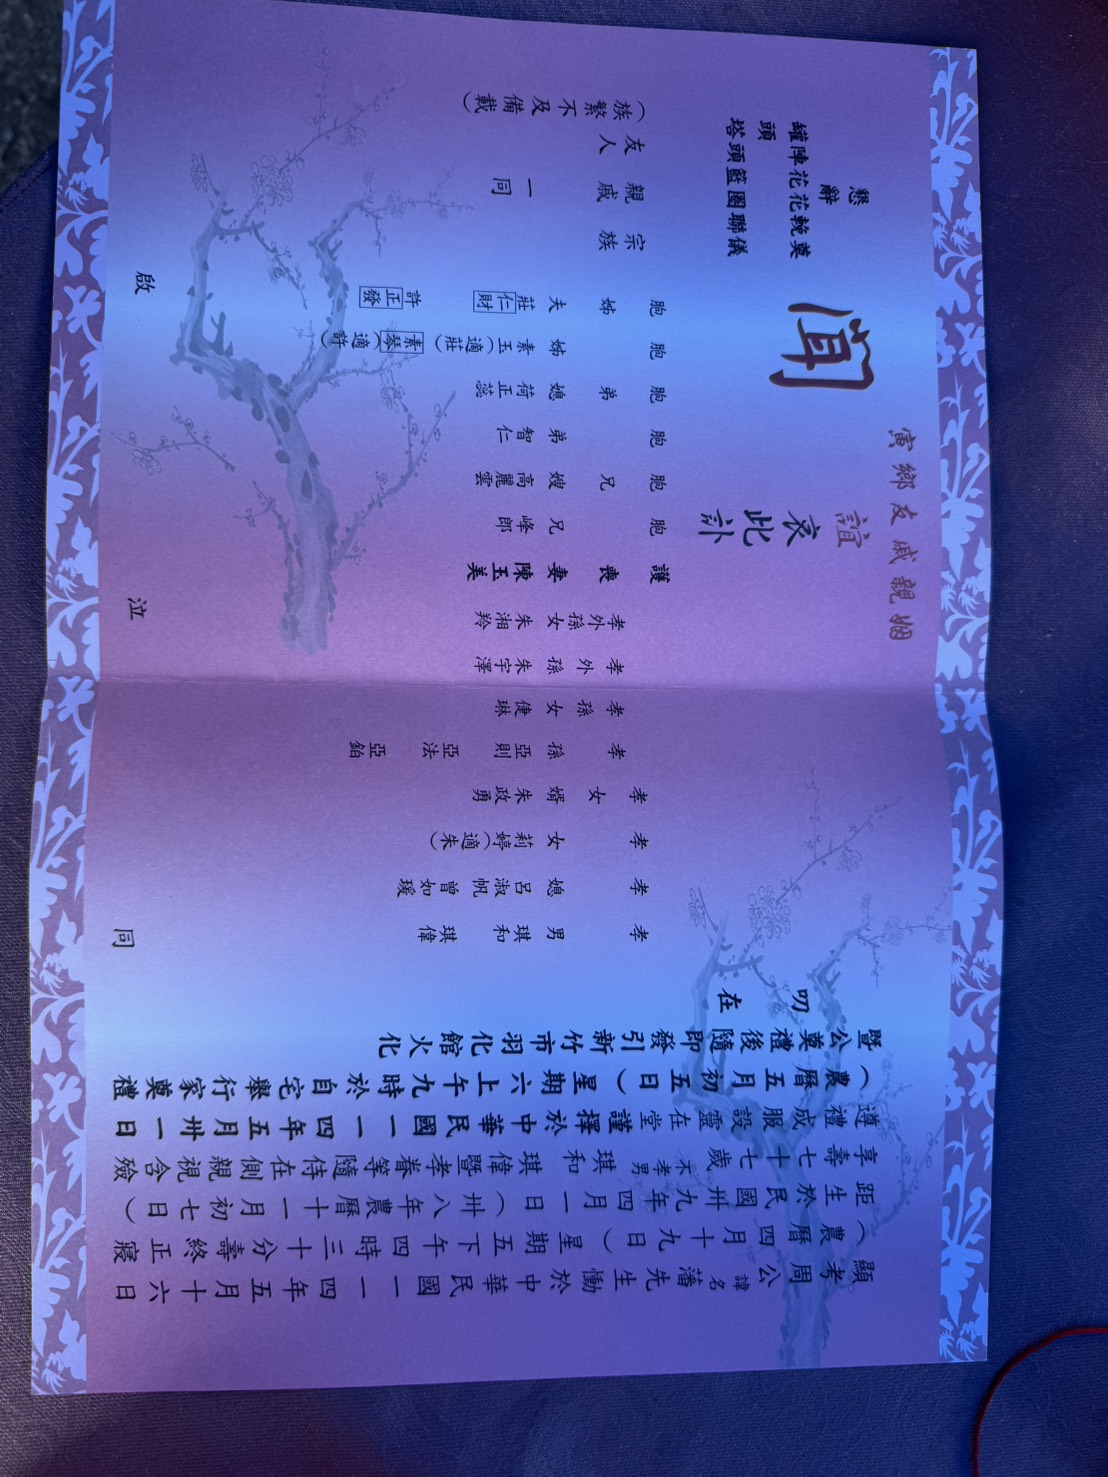 顯考周公諱名藩先生慟於中華民國一一四年五月十六日
（農曆四月十九日）星期五下午四時三十分壽終正寢
距生於民國卅九年四月一日（卅八年農曆十一月初七日）
享壽七十七歲不孝男琪和琪偉暨孝眷等隨侍在側親視含殮
遵禮成服設靈在堂謹擇於中華民國一一四年五月卅一日
（農曆五月初五日）星期六上午九時於自宅舉行家奠禮
暨公奠禮後隨即發引新竹市羽化館火化
叨在
姻親戚友鄉寅
誼
哀此訃
聞
懇辭
奠儀
輓聯
花圈
花籃
陣頭
罐頭塔
孝男 琪和 琪偉
孝媳 呂淑帆 曾如瑗
孝女 莉婷（適朱）
孝女婿 朱政勇
孝孫 亞則 亞法 亞鉑
孝孫女 倢琳
孝外孫 朱宇澤
孝外孫女 朱湘羚
護喪妻 陳玉美
胞兄 峰郎
胞兄嫂 高麗雲
胞弟 智仁
胞弟媳 荷正蕊
胞姊 素玉（適莊） 素琴（適許）
胞姊夫 莊仁財 許正發
宗族
親戚
友人
一同
（族繁不及備載）
同
泣
啟